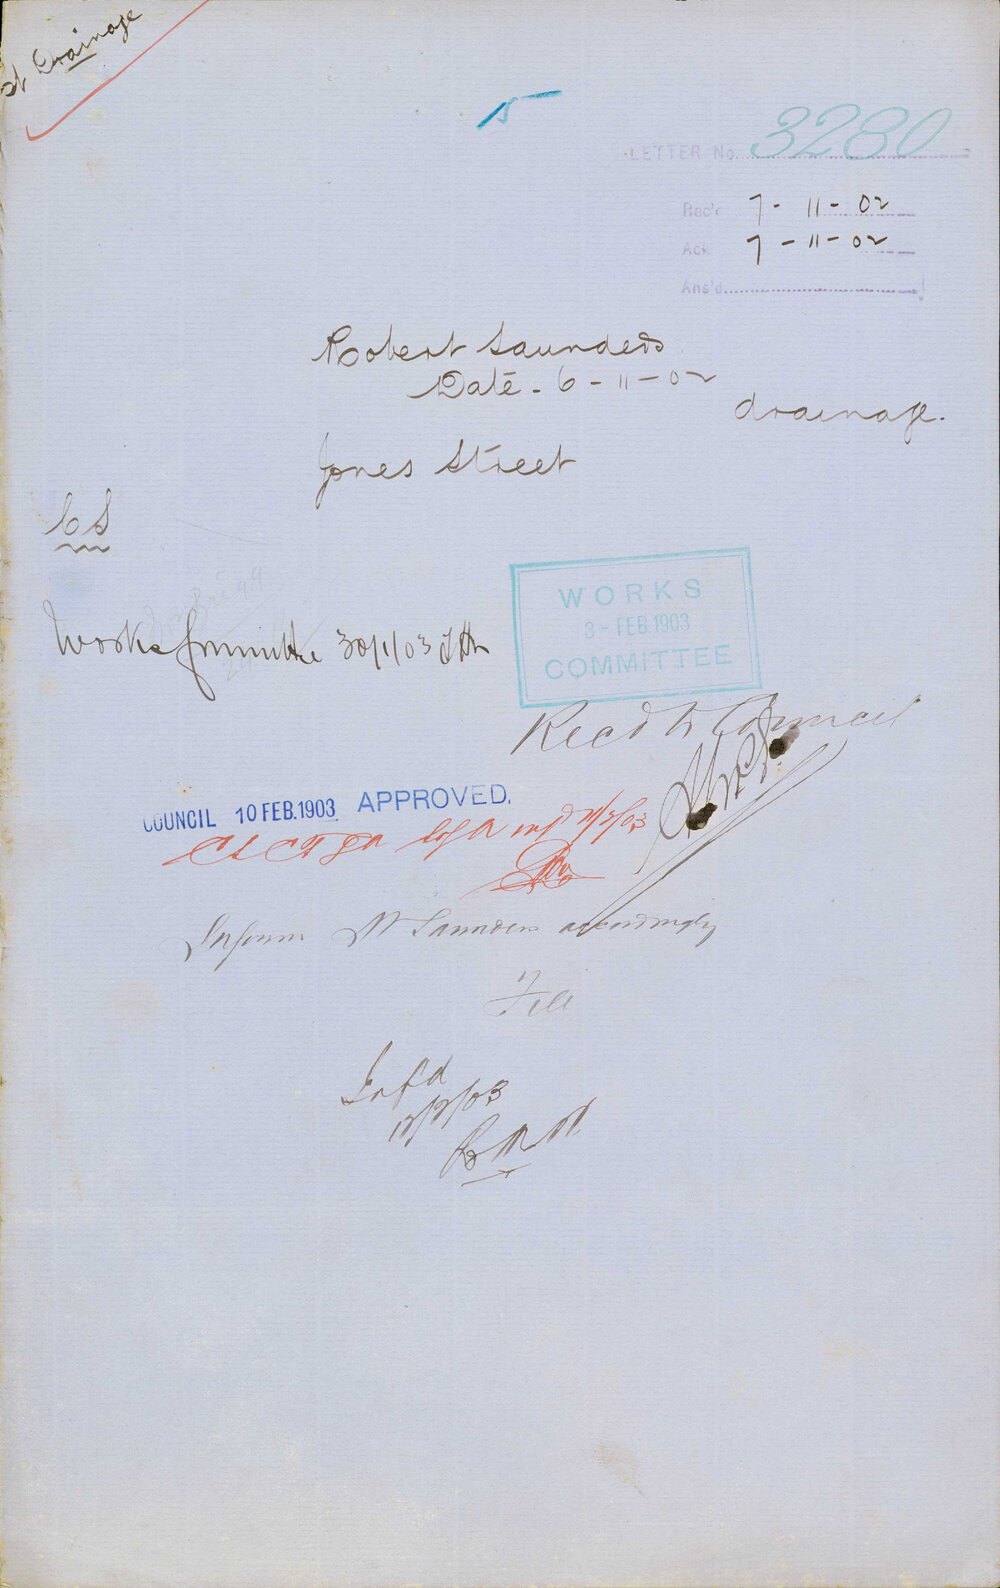 st Drainage
5
LETTER No. 3280
Rec'd 7-11-02
Ack 7-11-02
Ans'd
Robert Saunders
Date - 6-11-02
drainage.
Jones Street
CS
WORKS
3-FEB.1903
COMMITTEE
Works Committee 30/1/03
Recd to Council
COUNCIL 10 FEB.1903 APPROVED.
Inform Mr Saunders accordingly
File
Infd
12/2/03